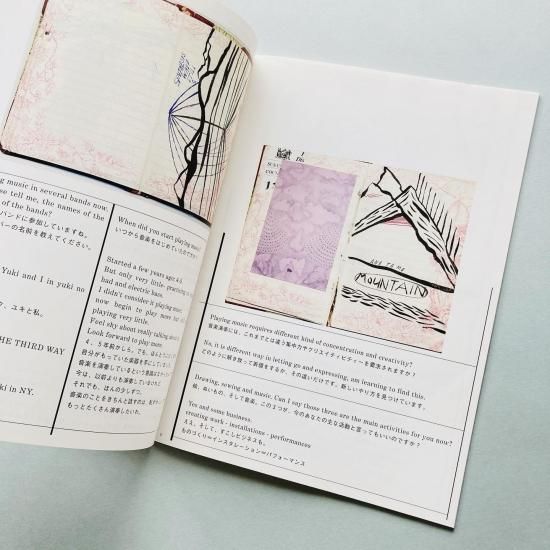 ng music in several bands now,
se tell me, the names of the
of the bands?
バンドに参加していますね。
バーの名前を教えてください。
Yuki and I in yuki no
ク、ユキと私。
HE THIRD WAY
ki in NY.
When did you start playing music?
いつから音楽をはじめていたのですか?
Started a few years ago 4-5
But only very little. practicing
had and electric bass.
I didn't consider it playing music
now begin to play more but
playing very little.
Feel shy about really talking about
Look forward to play more
4、5年前から。でも、ほんの
自分がもっていた楽器を手にして
音楽を演奏しているという
今は、以前よりも演奏しているけれど
それでも、ほんの少しずつ。
音楽のことをきちんと話すのは、
もっとたくさん演奏したいわ。
MOUNTAIN
Playing music requires different kind of concentration and creativity?
音楽演奏には、これまでとは違う集中力やクリエイティビティーを要求されますか?
No, it is different way in letting go and expressing, am learning to find this.
どのように解き放って表現をするか、その違いだけです。新しいやり方を見つけています。
Drawing, sewing and music. Can I say those three are the main activities for you now?
絵、ぬいもの、そして音楽。この3つが、今のあなたの主な活動と言ってもいいのですか?
Yes and some business.
creating work · installations · performances
ええ、そして、すこしビジネスも。
ものづくり∞インスタレーション∞パフォーマンス